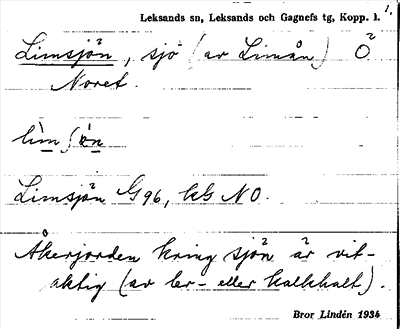 Leksands sn, Leksands och Gagnefs tg, Kopp. l. 1.
Limsjön, sjö (av Limån) Ö
Noret.
Limsjön G96, kb NO.
Åkerjorden kring sjön är vit-
aktig (av ler- eller kalkhalt).
Bror Lindén 1934